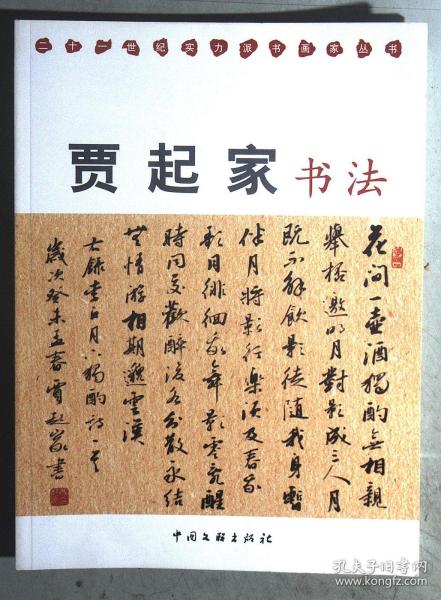 二十一世纪实力派书画家丛书
贾起家书法
花间一壶酒独酌无相親
舉杯邀明月對影成三人月
既不解飲影徒随我身暫
伴月將影行樂須及春我
歌月徘徊我舞影零亂醒
時同交歡醉後各分散永結
無情游相期邈雲漢
右録李白月下獨酌詩一首
歲次癸未孟春賈起家書
中国文联出版社
孔夫子旧书网
www.kongfz.com